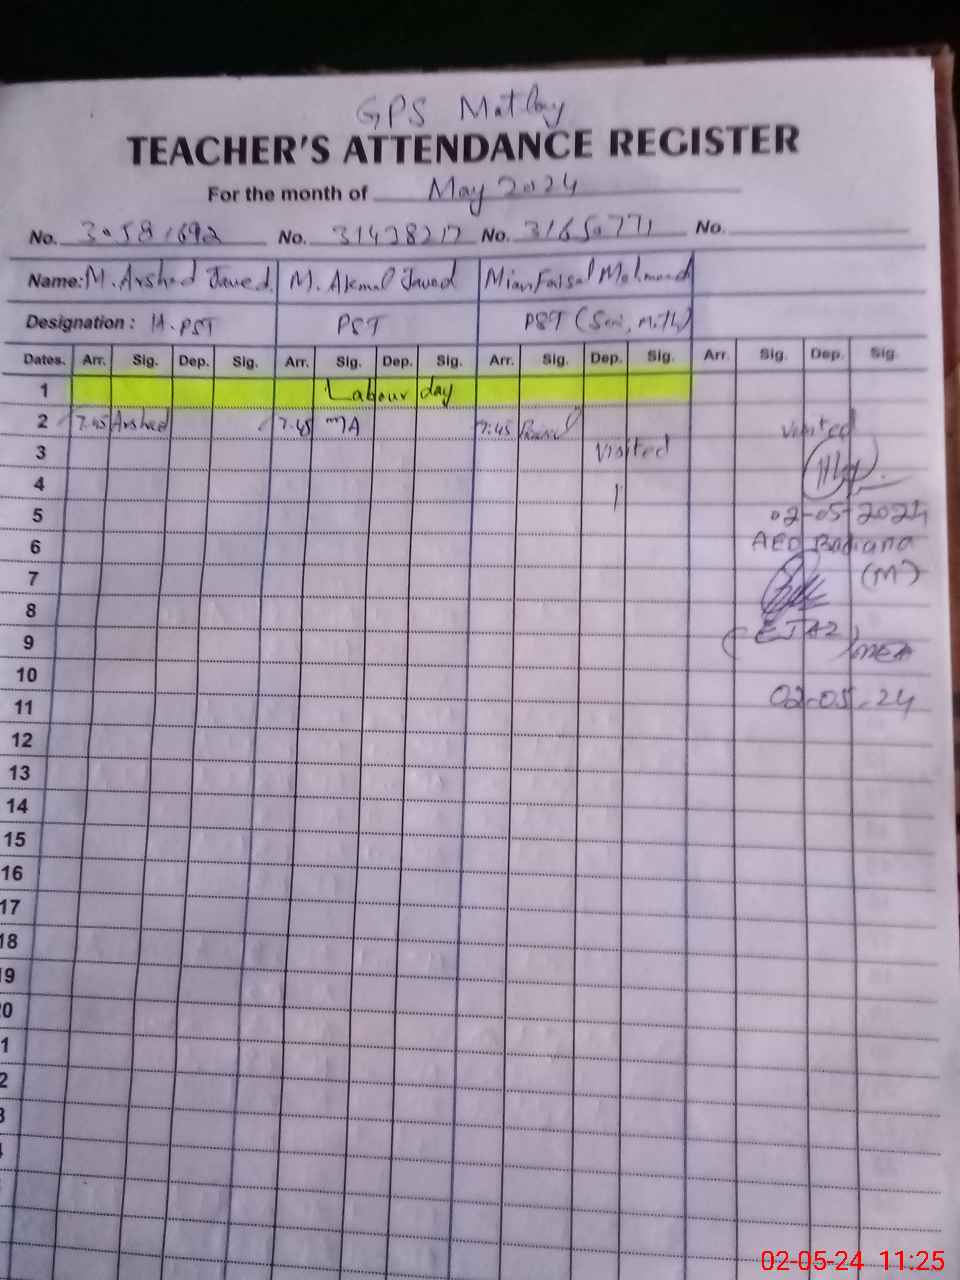 GPS Matlay
TEACHER'S ATTENDANCE REGISTER
For the month of May 2024
No. 30581692 No. 31428217 No. 31650771 No.
Name: M. Arshad Javed M. Akmal Javed Mian Faisal Mehmood
Designation: PST PST PST
Dates. Arr. Sig. Dep. Sig. Arr. Sig. Dep. Sig. Arr. Sig. Dep. Sig. Arr. Sig. Dep. Sig.
1 Labour day
2 7:45 Arshad 7:45 MA 7:45 visited
3 visited
4
5 02-05-2024
6 AEO Badiana
7 (M)
8
9 (EJAZ) MEA
10
11 02-05-24
12
13
14
15
16
17
18
19
20
1
2
3
02-05-24 11:25